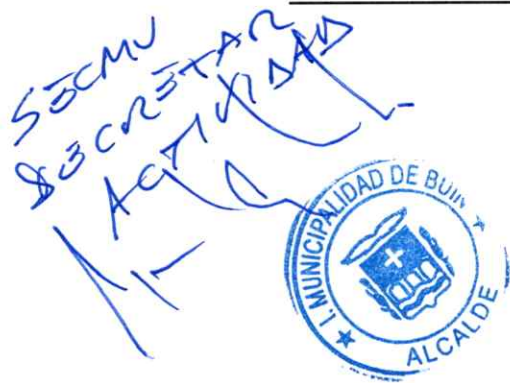 SECMU
DECRETAR
ACTIVIDAD
I. MUNICIPALIDAD DE BUIN
ALCALDE